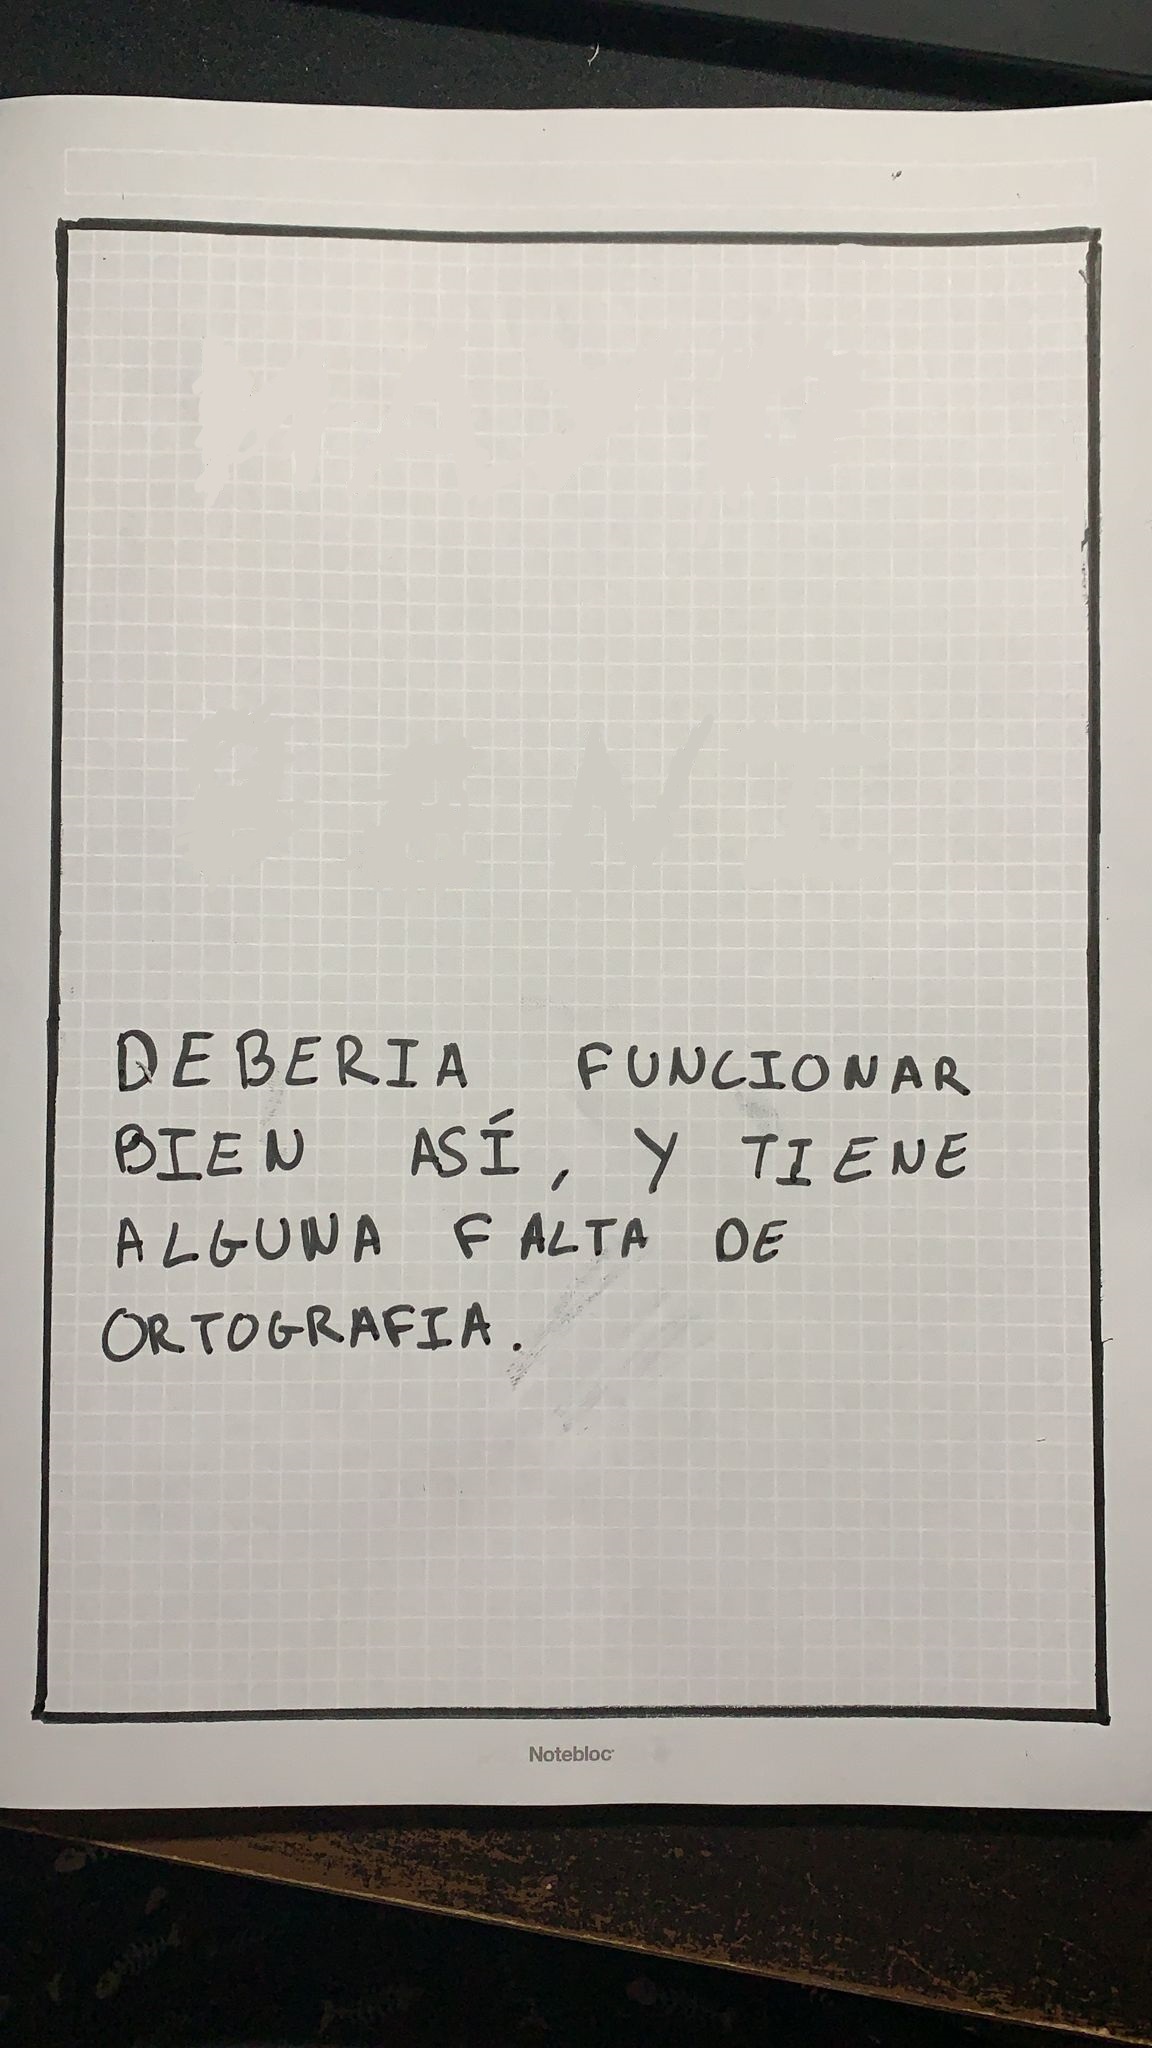 DEBERIA FUNCIONAR
BIEN ASÍ, Y TIENE
ALGUNA FALTA DE
ORTOGRAFIA.
Notebloc